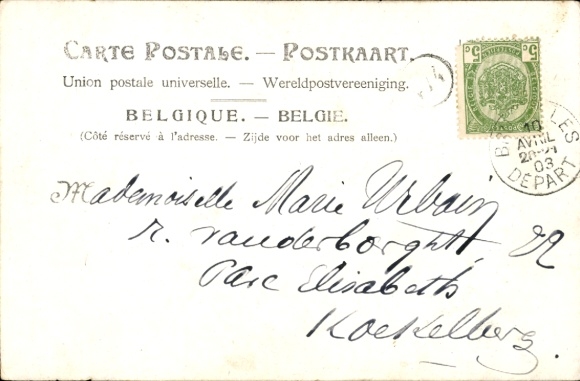 CARTE POSTALE. — POSTKAART.
Union postale universelle. — Wereldpostvereeniging.
BELGIQUE. — BELGIE.
(Côté réservé à l'adresse. — Zijde voor het adres alleen.)
5 c
c 5
10
AVRIL
20-21
03
DÉPART
Mademoiselle Marie Urbain
r. Vanderborght, 22
Parc Elisabeth
Koekelberg.